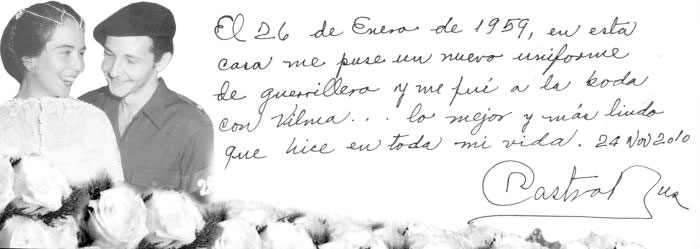 El 26 de Enero de 1959, en esta
casa me puse un nuevo uniforme
de guerrillero y me fuí a la boda
con Vilma... lo mejor y más lindo
que hice en toda mi vida. 24 Nov 2010
R Castro Ruz